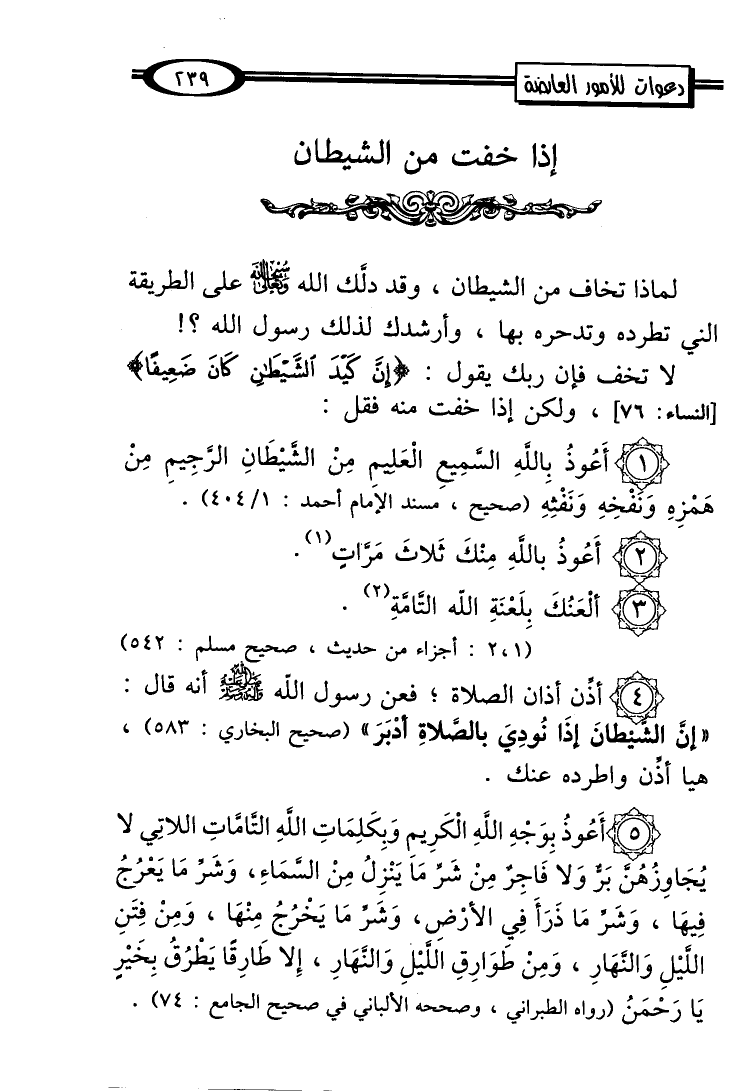 دعوات للأمور العارضة
٢٣٩
إذا خفت من الشيطان
لماذا تخاف من الشيطان ، وقد دلَّك الله سُبْحَانَهُ وَتَعَالَىٰ على الطريقة
التي تطرده وتدحره بها ، وأرشدك لذلك رسول الله ؟!
لا تخف فإن ربك يقول : ﴿إِنَّ كَيْدَ ٱلشَّيْطَٰنِ كَانَ ضَعِيفًا﴾
[النساء: ٧٦] ، ولكن إذا خفت منه فقل :
١ أَعُوذُ بِاللَّهِ السَّمِيعِ الْعَلِيمِ مِنْ الشَّيْطَانِ الرَّجِيمِ مِنْ
هَمْزِهِ وَنَفْخِهِ وَنَفْثِهِ (صحيح ، مسند الإمام أحمد : ٤٠٤/١) .
٢ أَعُوذُ بِاللَّهِ مِنْكَ ثَلاثَ مَرَّاتٍ(١) .
٣ أَلْعَنُكَ بِلَعْنَةِ اللّه التَّامَّةِ(٢) .
(٢،١ : أجزاء من حديث ، صحيح مسلم : ٥٤٢)
٤ أذِّن أذان الصلاة ؛ فعن رسول اللّه ﷺ أنه قال :
«إنَّ الشَّيْطَانَ إذَا نُودِيَ بالصَّلاةِ أدْبَرَ» (صحيح البخاري : ٥٨٣) ،
هيا أذِّن واطرده عنك .
٥ أَعُوذُ بِوَجْهِ اللَّهِ الْكَرِيمِ وَبِكَلِمَاتِ اللَّهِ التَّامَّاتِ اللاتِي لا
يُجَاوِزُهُنَّ بَرٌّ وَلا فَاجِرٌ مِنْ شَرِّ مَا يَنْزِلُ مِنْ السَّمَاءِ، وَشَرِّ مَا يَعْرُجُ
فِيهَا ، وَشَرِّ مَا ذَرَأَ فِي الأرْضِ، وَشَرِّ مَا يَخْرُجُ مِنْهَا ، وَمِنْ فِتَنِ
اللَّيْلِ وَالنَّهَارِ ، وَمِنْ طَوَارِقِ اللَّيْلِ وَالنَّهَارِ ، إِلا طَارِقًا يَطْرُقُ بِخَيْرٍ
يَا رَحْمَنُ (رواه الطبراني ، وصححه الألباني في صحيح الجامع : ٧٤) .